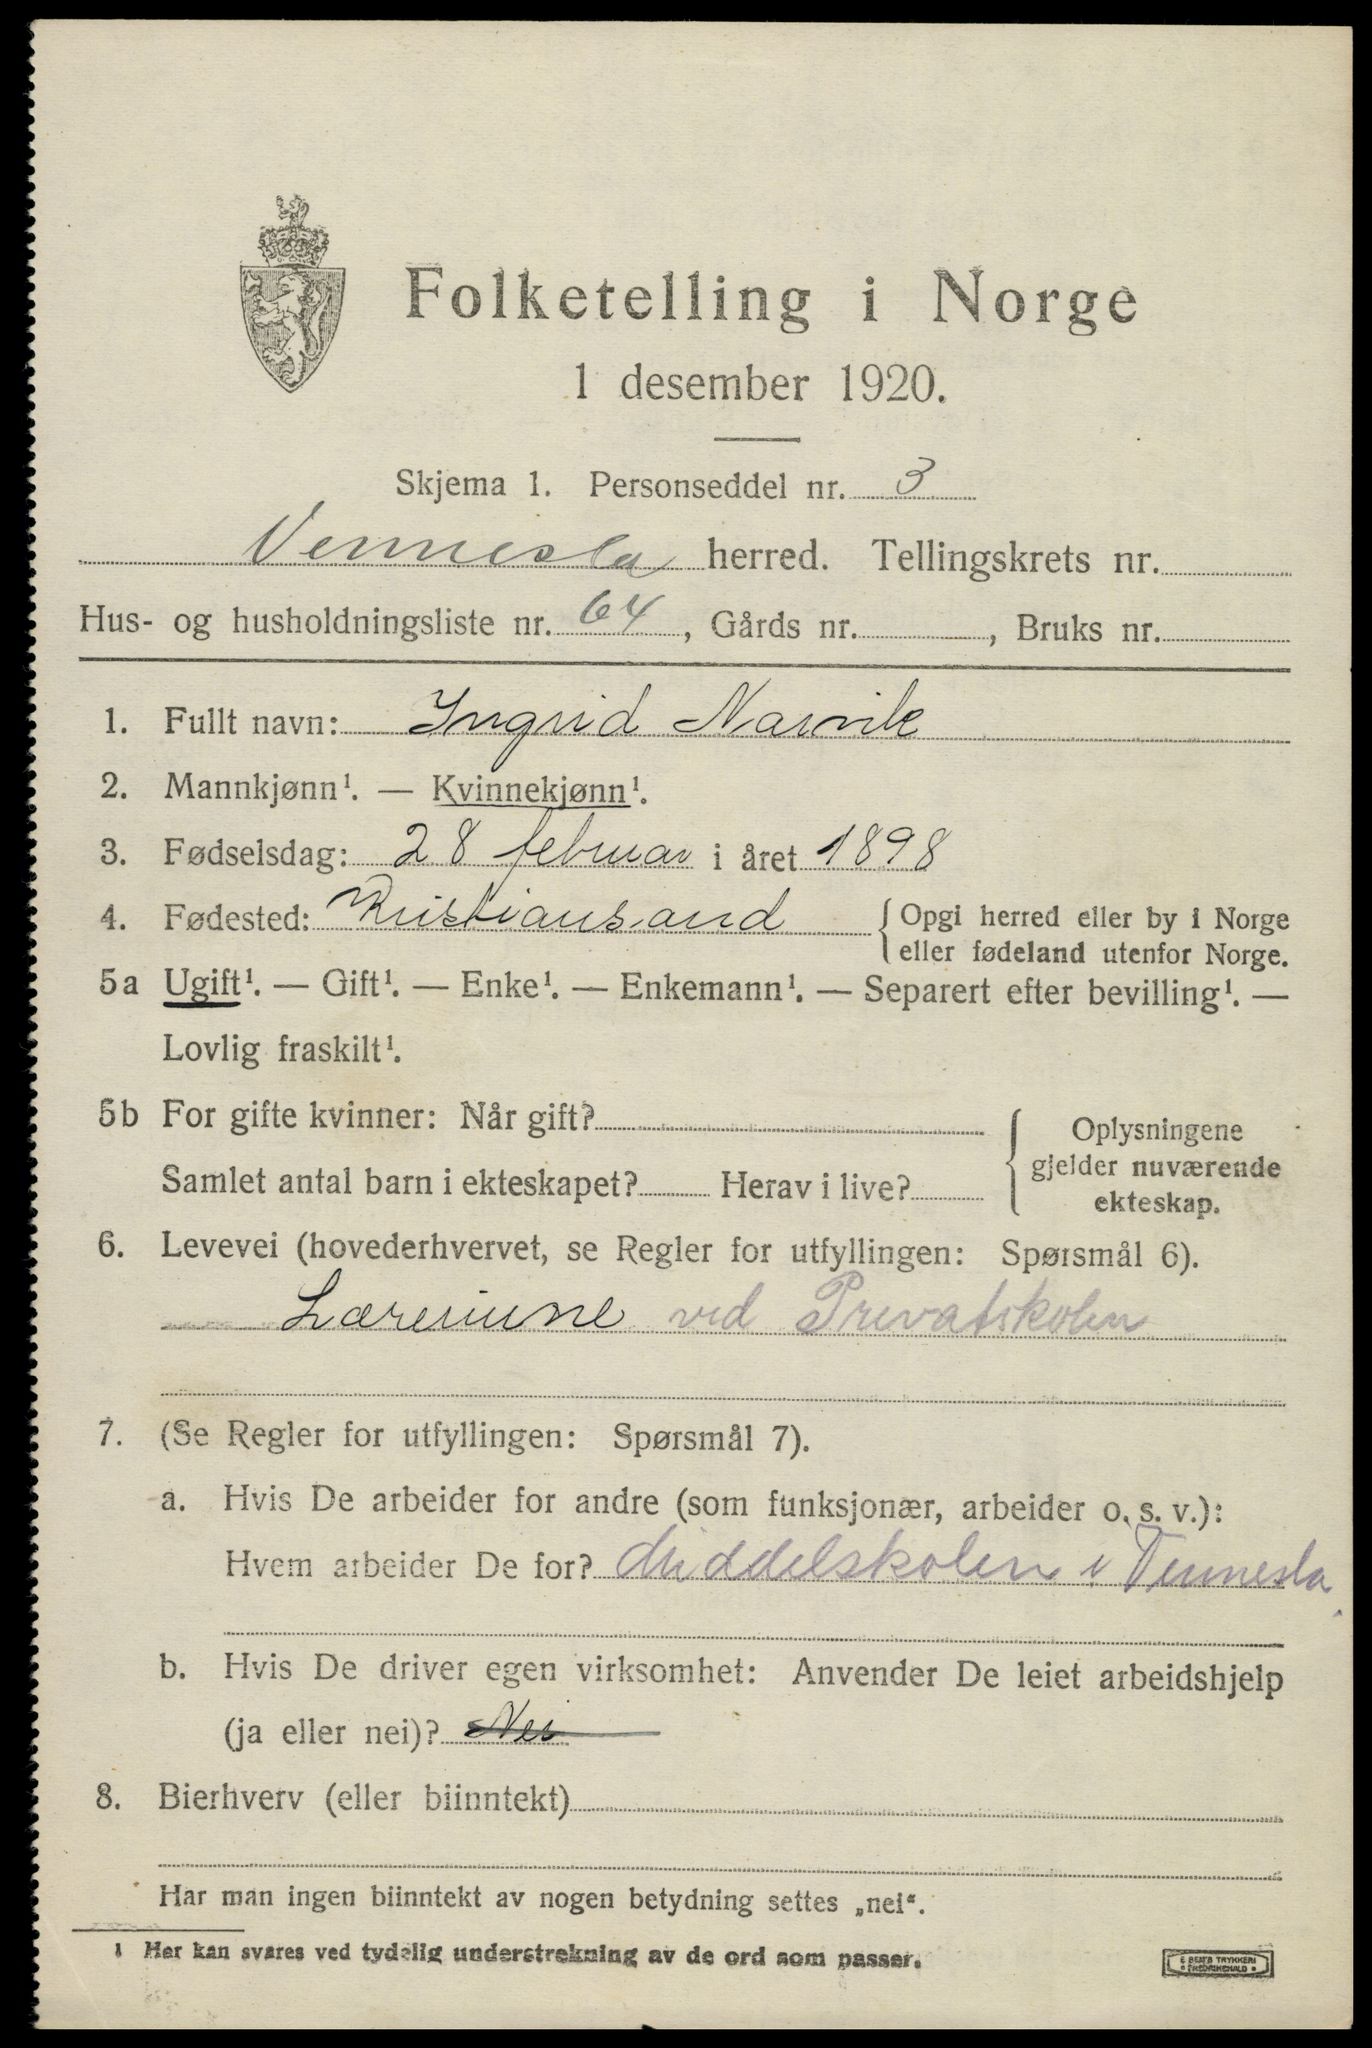 Folketelling i Norge
1 desember 1920.
Skjema 1. Personseddel nr. 3
Vennesla herred. Tellingskrets nr.
Hus- og husholdningsliste nr. 64, Gårds nr. , Bruks nr.
1. Fullt navn: Ingrid Narvik
2. Mannkjønn¹. — Kvinnekjønn¹.
3. Fødselsdag: 28 februar i året 1898
4. Fødested: Kristiansand { Opgi herred eller by i Norge
eller fødeland utenfor Norge.
5a Ugift¹. — Gift¹. — Enke¹. — Enkemann¹. — Separert efter bevilling¹. —
Lovlig fraskilt¹.
5b For gifte kvinner: Når gift? { Oplysningene
gjelder nuværende
Samlet antal barn i ekteskapet? Herav i live? ekteskap.
6. Levevei (hovederhvervet, se Regler for utfyllingen: Spørsmål 6).
Lærerinne ved Privatskolen
7. (Se Regler for utfyllingen: Spørsmål 7).
a. Hvis De arbeider for andre (som funksjonær, arbeider o. s. v.):
Hvem arbeider De for? Middelskolen i Vennesla.
b. Hvis De driver egen virksomhet: Anvender De leiet arbeidshjelp
(ja eller nei)? Nei
8. Bierhverv (eller biinntekt)
Har man ingen biinntekt av nogen betydning settes „nei“.
1 Her kan svares ved tydelig understrekning av de ord som passer.
E SEM'S TRYKKERI
FREDRIKSHALD